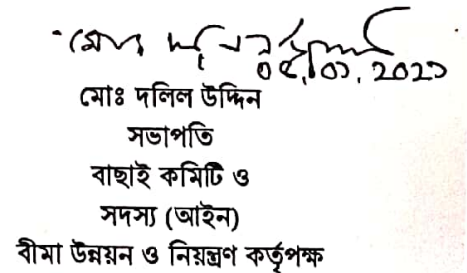 মোঃ
০৫.০১.২০২১
মোঃ দলিল উদ্দিন
সভাপতি
বাছাই কমিটি ও
সদস্য (আইন)
বীমা উন্নয়ন ও নিয়ন্ত্রণ কর্তৃপক্ষ